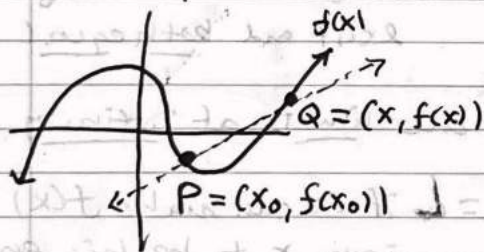 f(x)
Q = (x, f(x))
P = (x₀, f(x₀))